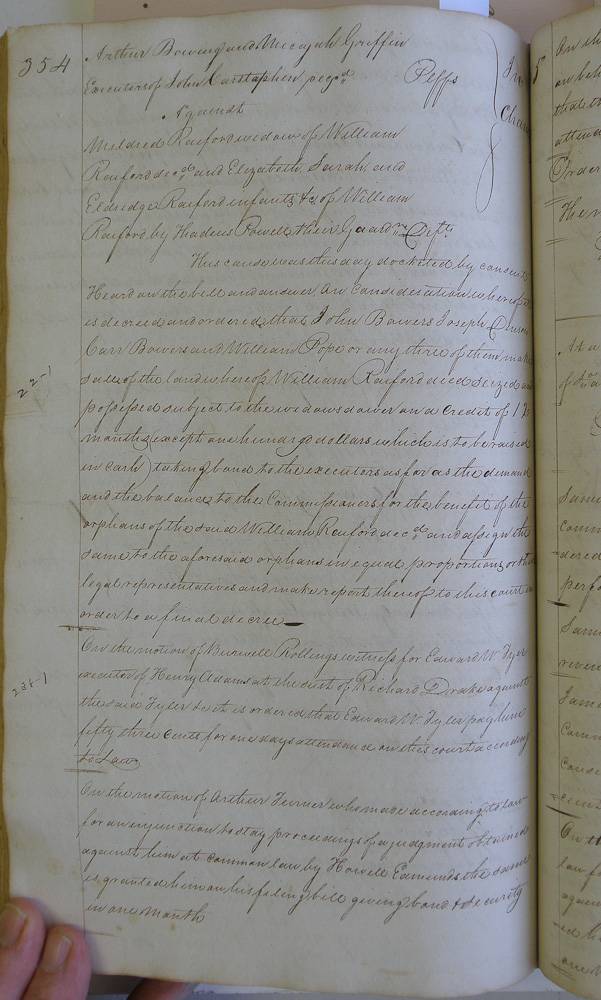 354
Arthur Bowing and Micajah Griffin
Executors of John Carstaphen decd. Plffs In
Against Chan
Mildred Raiford widow of William
Raiford decd. and Elizabeth, Sarah, and
Eldredge Raiford infants &c of William
Raiford by Thadeus Powell their Guardn. Defts.
This cause was this day docketed by consent
Heard on the bill and answer, on Consideration whereof it
is decreed and ordered that John Bowers Joseph
Carr Bowers and William Pope or any three of them make
sale of the land whereof William Raiford died seized and
possessed subject to the widows dower on a Credit of 12
months (except one hundred dollars which is to be raised
in Cash) taking bond to the executors as far as the demand
and the balance to the Commissioners for the benefit of the
orphans of the said William Raiford decd. and assign the
same to the aforesaid orphans in equal proportions or their
legal representatives and make report thereof to this court in
order to a final decree
22-1
On the motion of Burwell Rollings witness for Edward W. Tyler
executor of Henry Adams at the suit of Richard Drake against
the said Tyler &c it is ordered that Edward W. Tyler pay him
fifty three Cents for one days attendance on this court according
to Law
On the motion of Arthur Turner who made according to law
for an injunction to stay proceedings of a judgment obtained
against him at common law by Howell Edmunds the same
is granted him on his filing bill giving bond & security
in one month